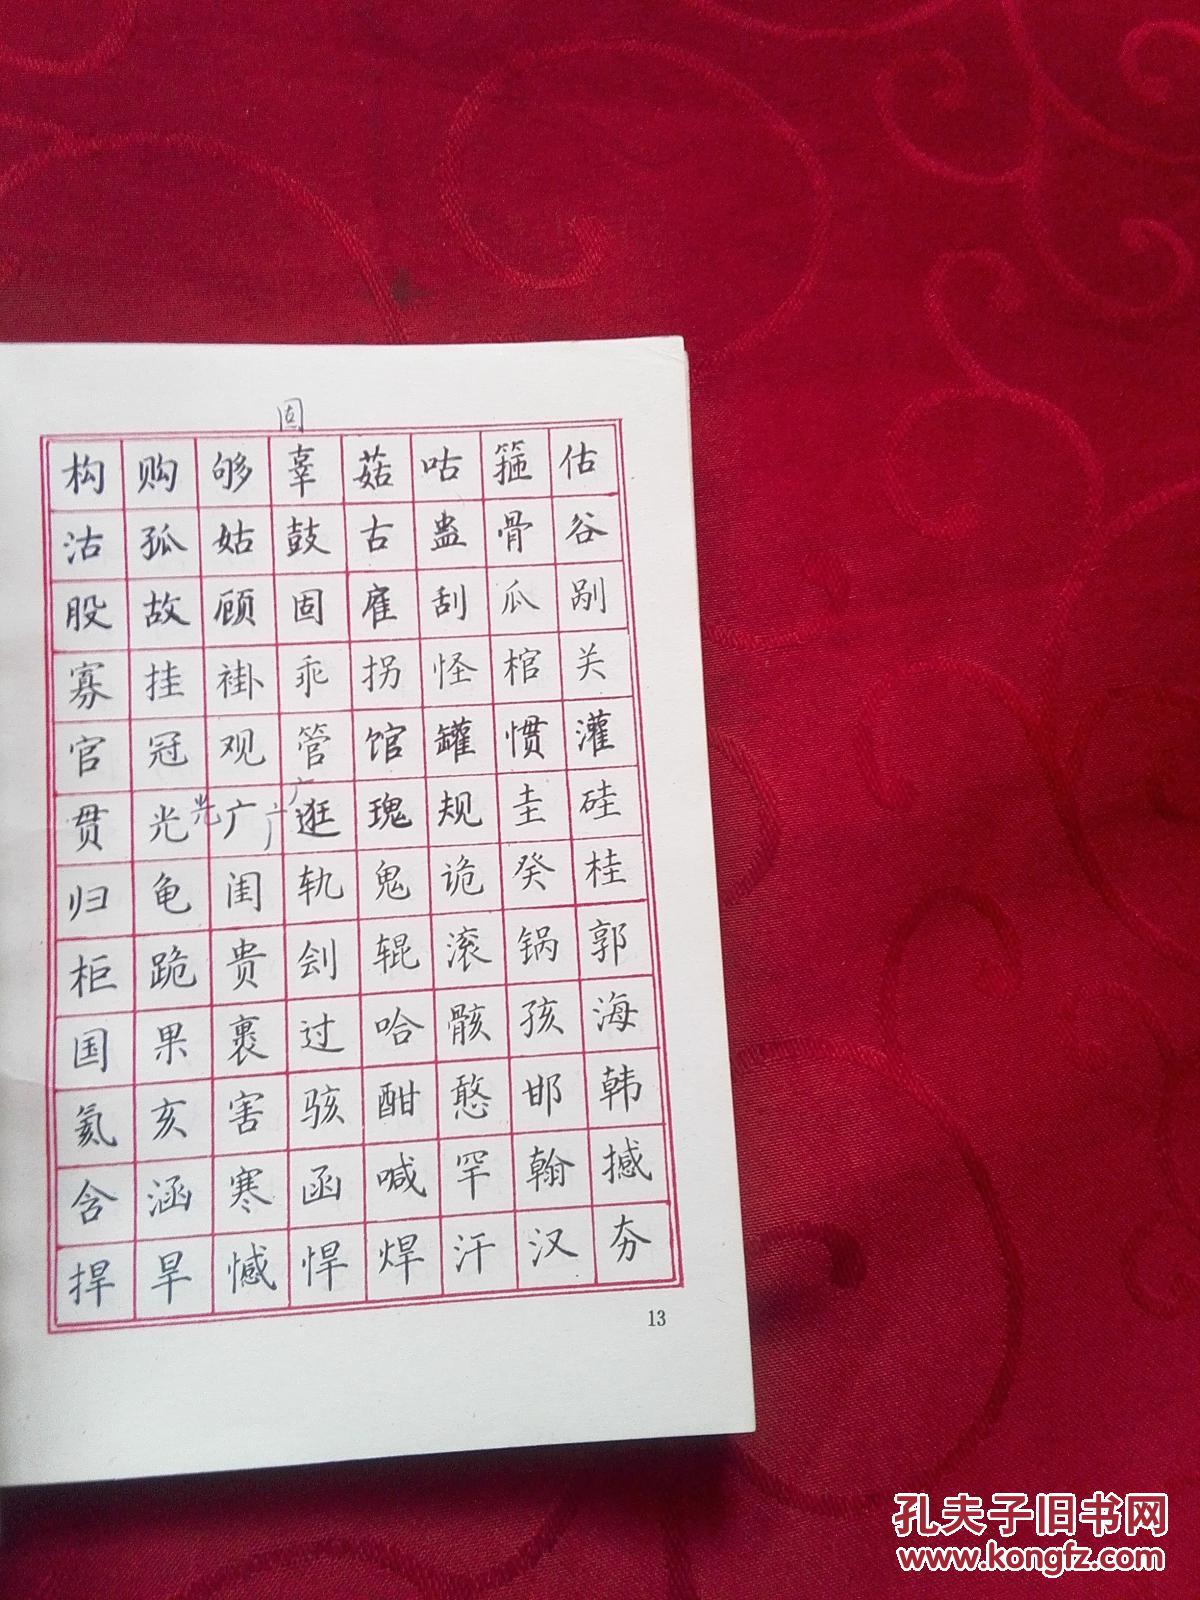 固
构购够辜菇咕箍估
沽孤姑鼓古蛊骨谷
股故顾固雇刮瓜剐
寡挂褂乖拐怪棺关
官冠观管馆罐惯灌
广
贯光光广广逛瑰规圭硅
归龟闺轨鬼诡癸桂
柜跪贵刽辊滚锅郭
国果裹过哈骸孩海
氦亥害骇酣憨邯韩
含涵寒函喊罕翰撼
捍旱憾悍焊汗汉夯
13
孔夫子旧书网
www.kongfz.com